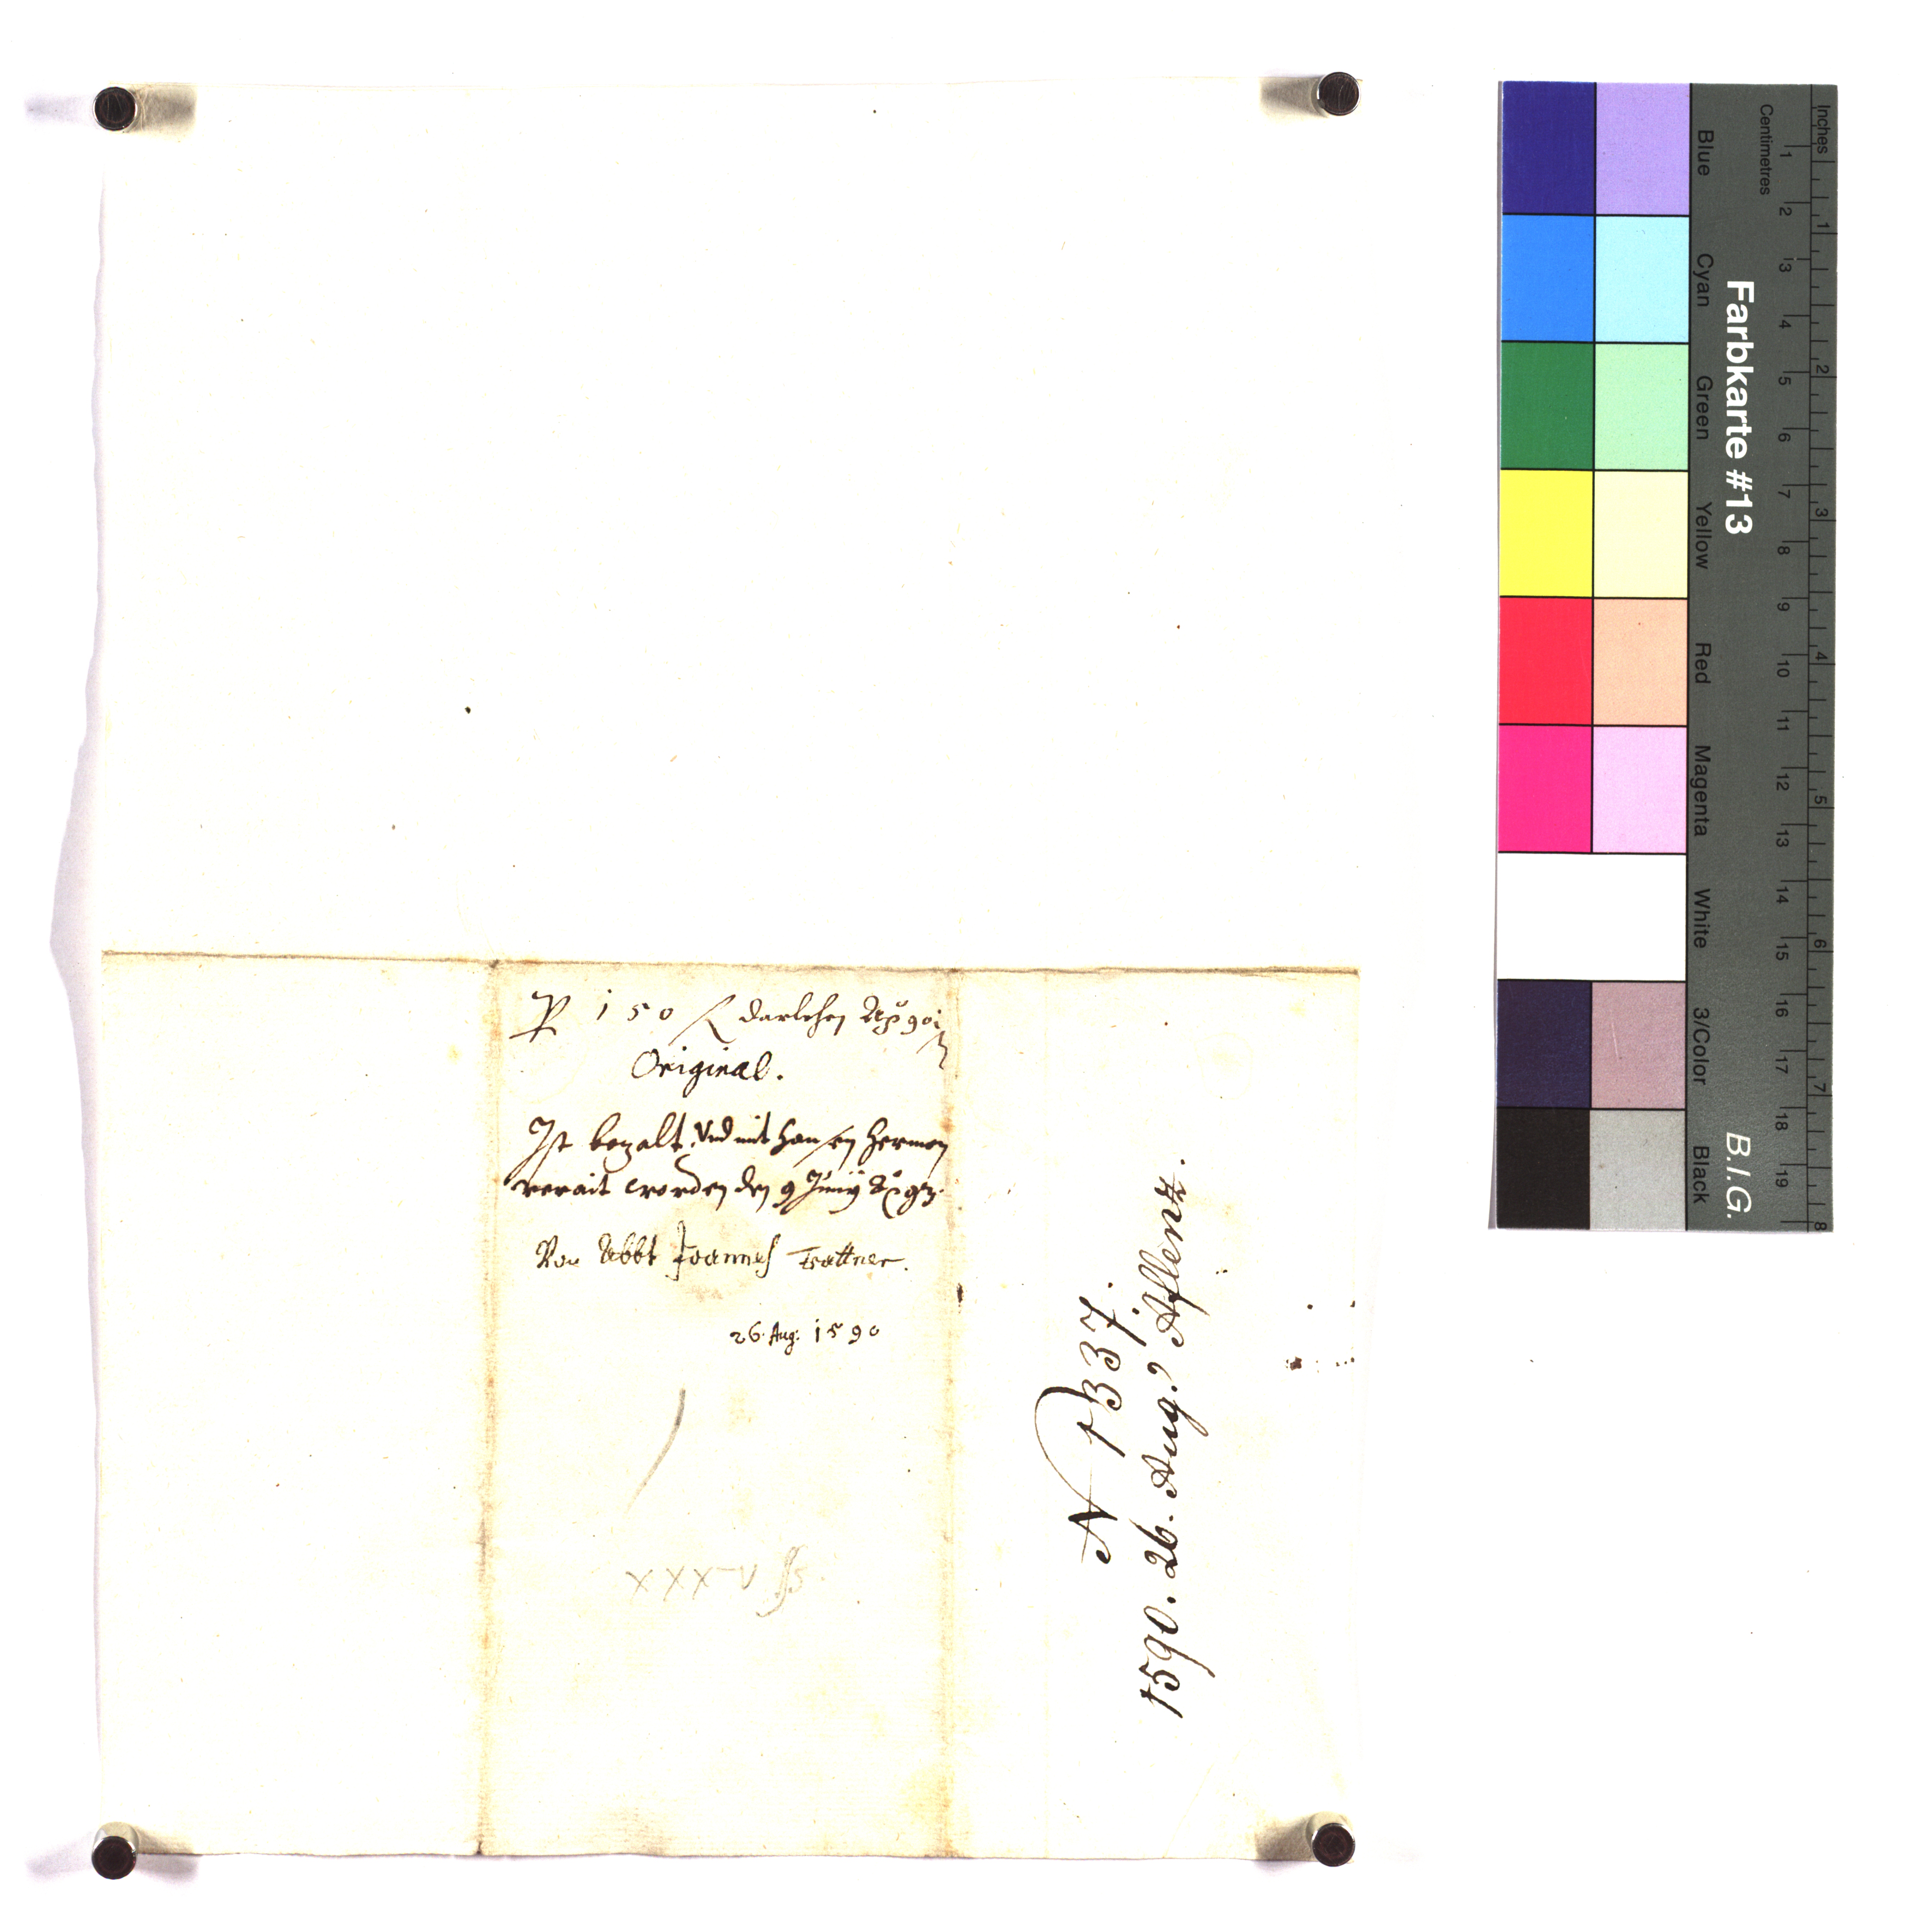 P 150 f darlehen
Original.
Ist bezalt, Vnd mit Hansen Herman
verait worden den 9 Junij
Von Abbt Joannes Trattner.
26. Aug. 1590
N 1331.
1590. 26. Aug. Aflenz.
Farbkarte #13
B.I.G.
Inches
Centimetres
1 2 3 4 5 6 7 8 9 10 11 12 13 14 15 16 17 18 19
1 2 3 4 5 6 7 8
Blue Cyan Green Yellow Red Magenta White 3/Color Black